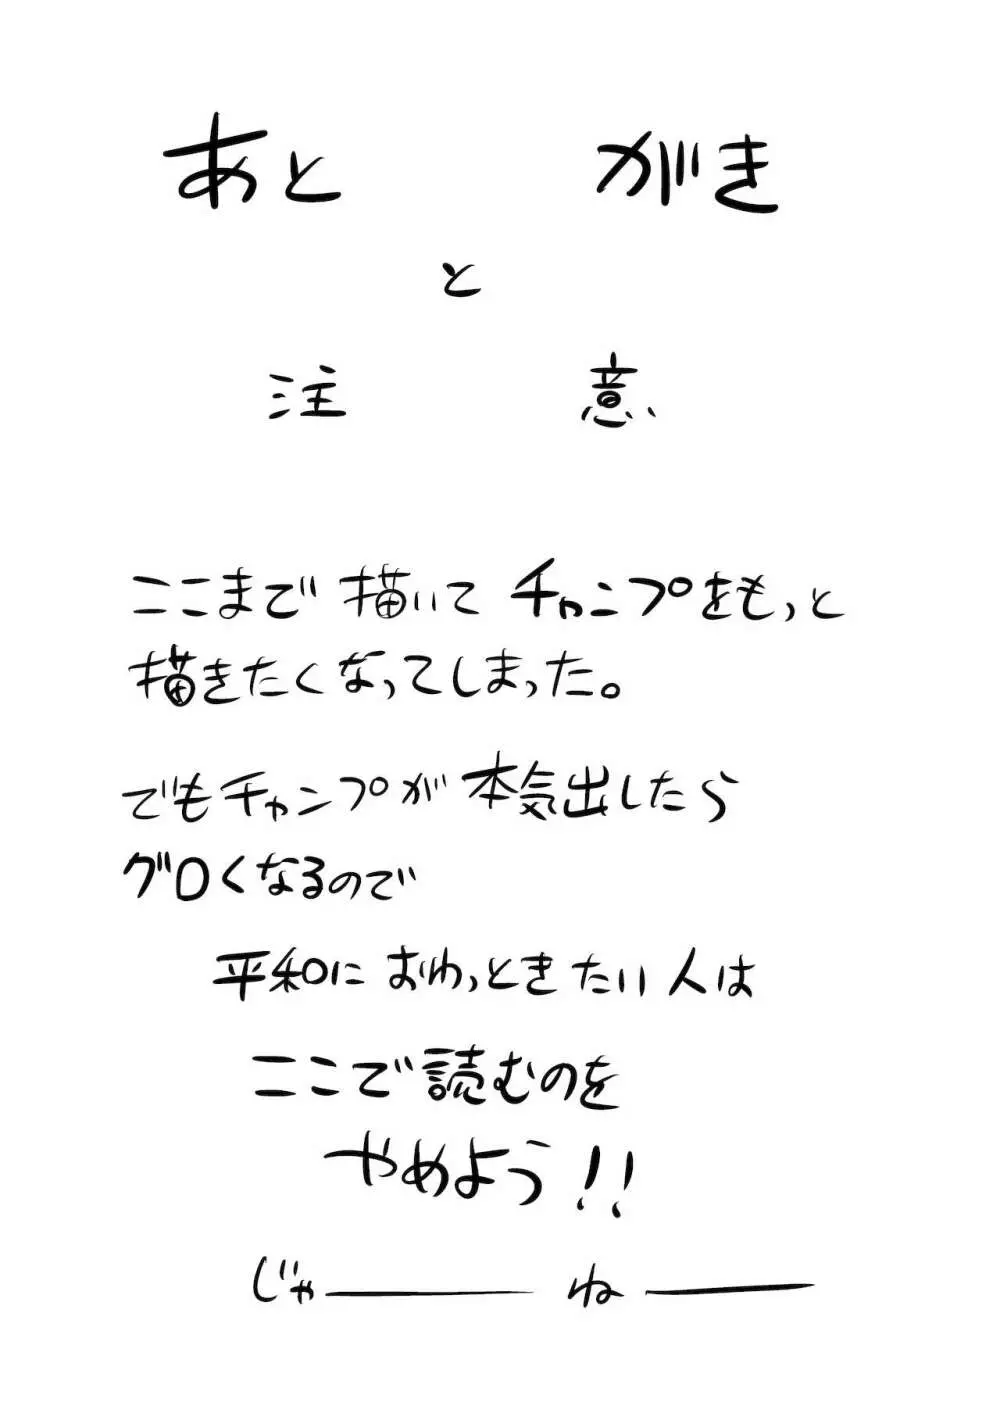 あとがき
と
注意
ここまで描いてチャンプをもっと
描きたくなってしまった。
でもチャンプが本気出したら
グロくなるので
平和におわっときたい人は
ここで読むのを
やめよう!!
じゃーねー